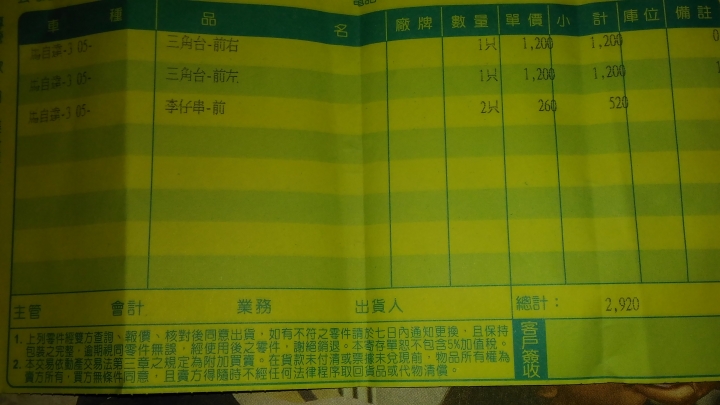 車種 品名 廠牌 數量 單價 小計 庫位 備註
馬自達-3 05- 三角台-前右 1只 1,200 1,200 0
馬自達-3 05- 三角台-前左 1只 1,200 1,200
馬自達-3 05- 李仔串-前 2只 260 520
主管 會計 業務 出貨人 總計： 2,920
1. 上列零件經雙方查證、報價、核對後同意出貨，如有不符之零件請於七日內通知更換，且保持
包裝之完整，逾期視同零件無誤，經使用後之零件，謝絕銷退。本寄存單恕不包含5%加值稅。
2. 本交易依動產交易法第三章之規定為附加買賣。在貨款未付清或票據未兌現前，物品所有權為
賣方所有，買方無條件同意，且賣方得隨時不經任何法律程序取回貨品或代物清償。
客戶簽收